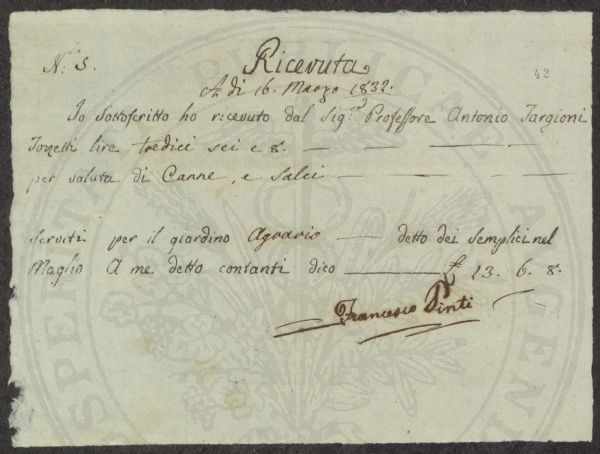 N.° 5.
Ricevuta
42
A di 16. Marzo 1832.
Io Sottoscritto ho ricevuto dal Sig.r Professore Antonio Targioni
Tozzetti lire tredici sei e 8. — — — —
per valuta di Canne, e Salci — — — —
serviti per il giardino Agrario — detto dei Semplici nel
Maglio A me detto contanti dico — £ 13. 6. 8.
Francesco Pinti